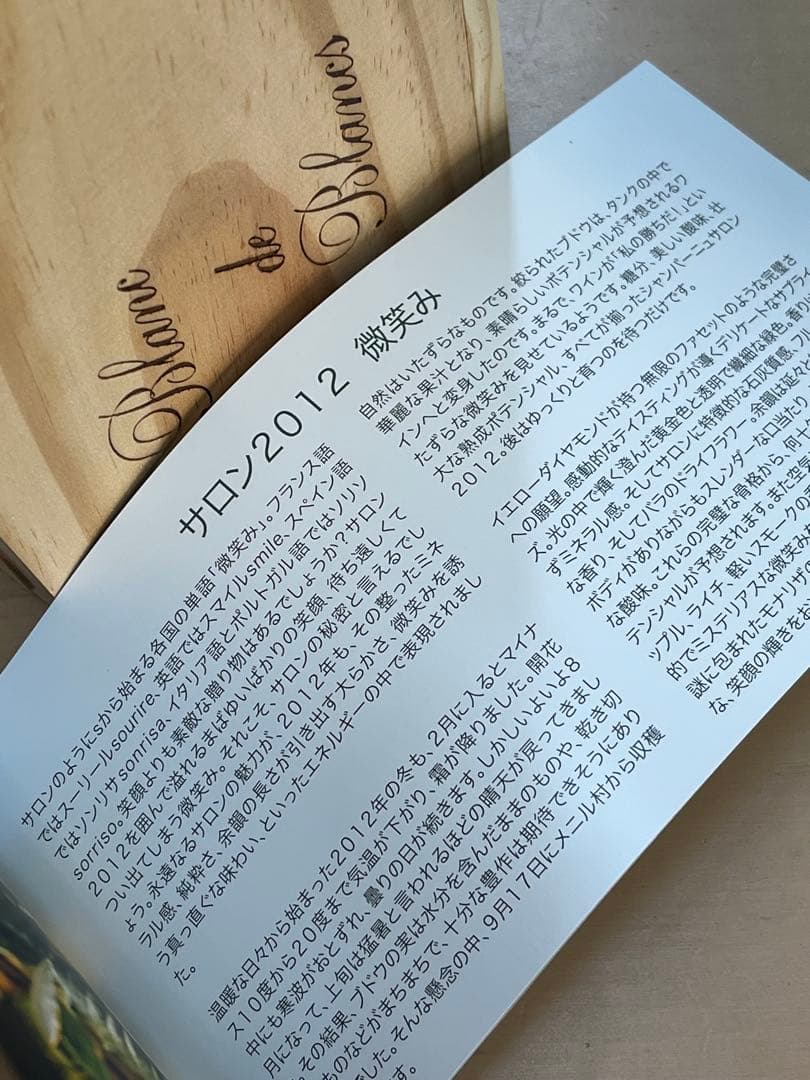 Blanc
de
Blancs
サロン2012 微笑み
サロンのようにsから始まる各国の単語「微笑み」。フランス語
ではスーリールsourire、英語ではスマイルsmile、スペイン語
ではソンリサsonrisa、イタリア語とポルトガル語ではソリソ
sorriso。笑顔よりも素敵な贈り物はあるでしょうか？サロン
2012を囲んで溢れるまばゆいばかりの笑顔、待ち遠しくて
つい出てしまう微笑み。それこそ、サロンの秘密と言えるでし
ょう。永遠なるサロンの魅力が、2012年も、その整ったミネ
ラル感、純粋さ、余韻の長さが引き出す大らかさ、微笑みを誘
う真っ直ぐな味わい、といったエネルギーの中で表現されまし
た。
温暖な日々から始まった2012年の冬も、2月に入るとマイナ
ス10度から20度まで気温が下がり、霜が降りました。開花
中にも寒波がおとずれ、曇りの日が続きます。しかしいよいよ8
月になって、上旬は猛暑と言われるほどの晴天が戻ってきまし
。その結果、ブドウの実は水分を含んだままのものや、乾き切
ものなどがまちまちで、十分な豊作は期待できそうにあり
でした。そんな懸念の中、9月17日にメニール村から収穫
す。
自然はいたずらなものです。絞られたブドウは、タンクの中で
華麗な果汁となり、素晴らしいポテンシャルが予想されるワ
インへと変身したのです。まるで、ワインが「私の勝ちだ！」とい
たずらな微笑みを見せているようです。糖分、美しい酸味、壮
大な熟成ポテンシャル、すべてが揃ったシャンパーニュサロン
2012。後はゆっくりと育つのを待つだけです。
イエローダイヤモンドが持つ無限のファセットのような完璧さ
への願望。感動的なテイスティングが導くデリケートなサプライ
ズ。光の中で輝く澄んだ黄金色と透明で繊細な緑色。香り
ずミネラル感。そしてサロンに特徴的な石灰質感、フ
な香り、そしてバラのドライフラワー。余韻は延々
ボディがありながらもスレンダーな口当たり
な酸味。これらの完璧な骨格から、何
テンシャルが予想されます。また空気
ップル、ライチ、軽いスモークの
的でミステリアスな微笑み
謎に包まれたモナリザの
な、笑顔の輝きをお